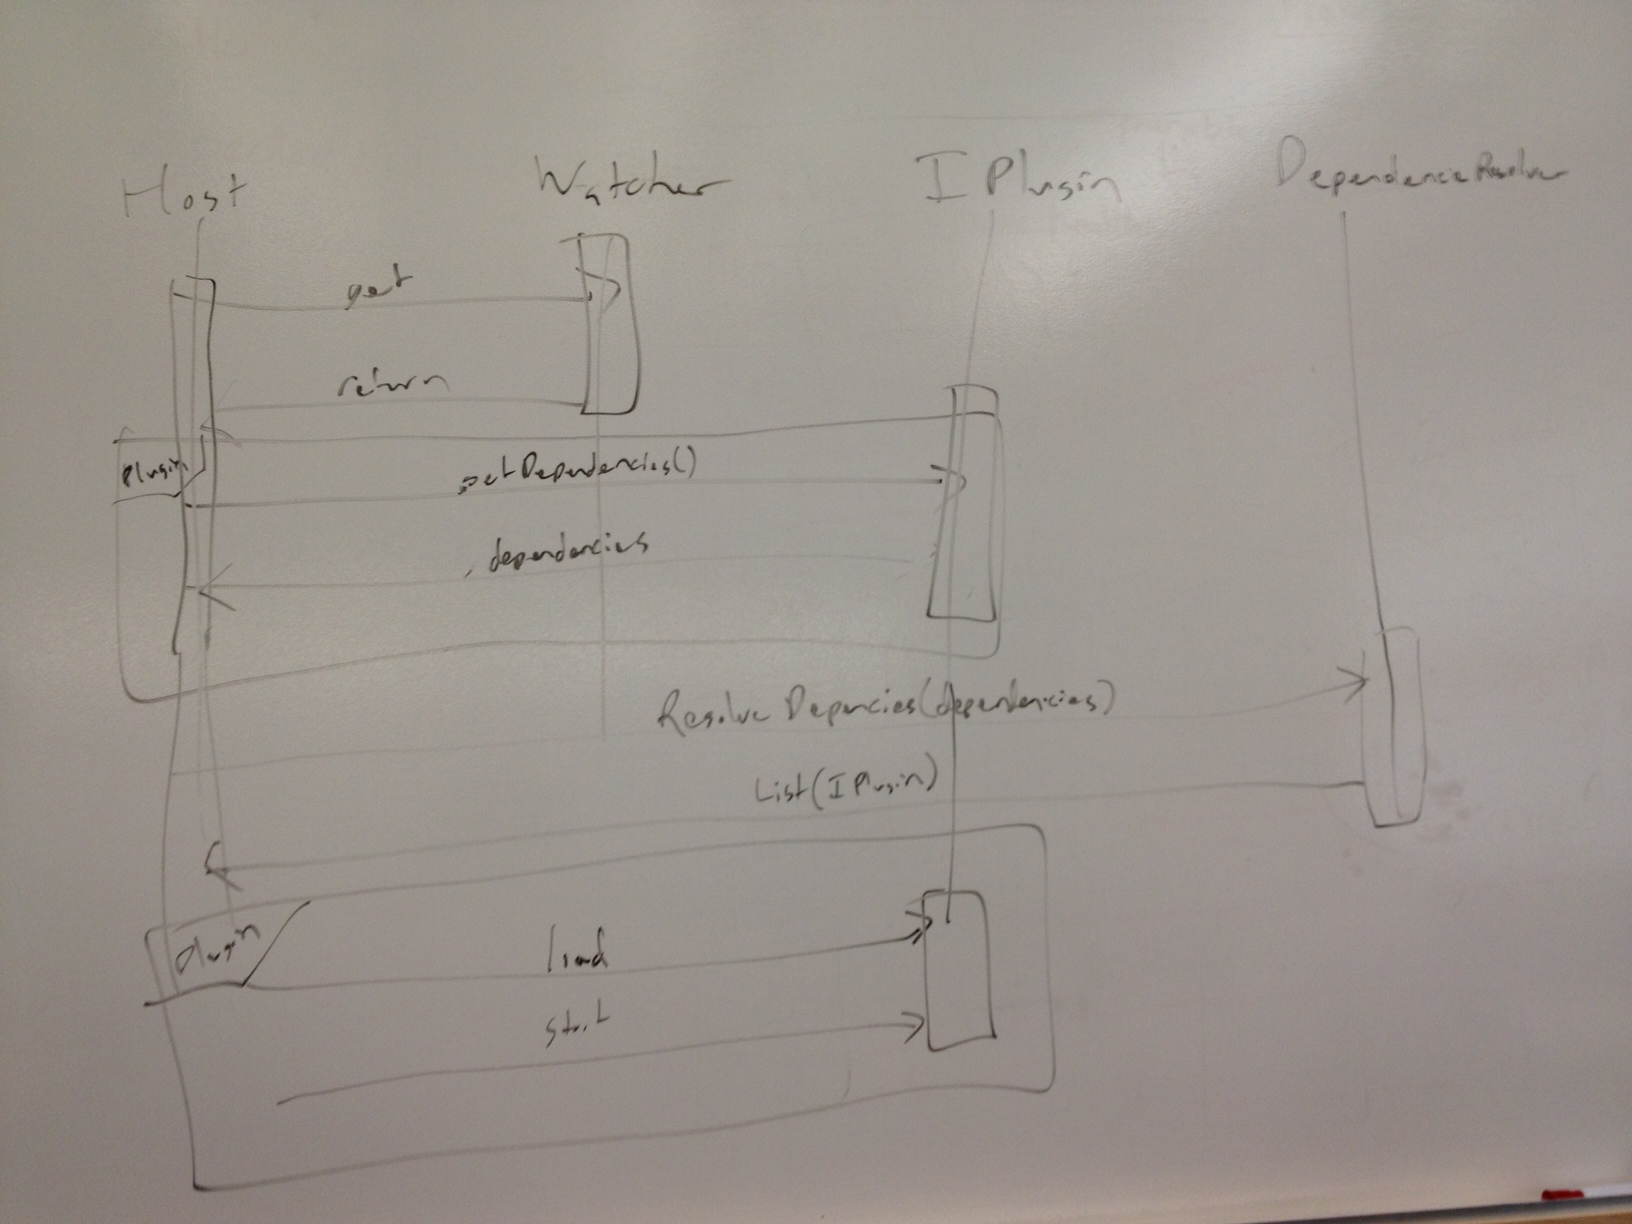 Host Watcher IPlugin DependenceResolver
get
return
Plugin
getDependencies()
dependencies
Resolve Depencies(dependencies)
List(IPlugin)
Plugin
load
start